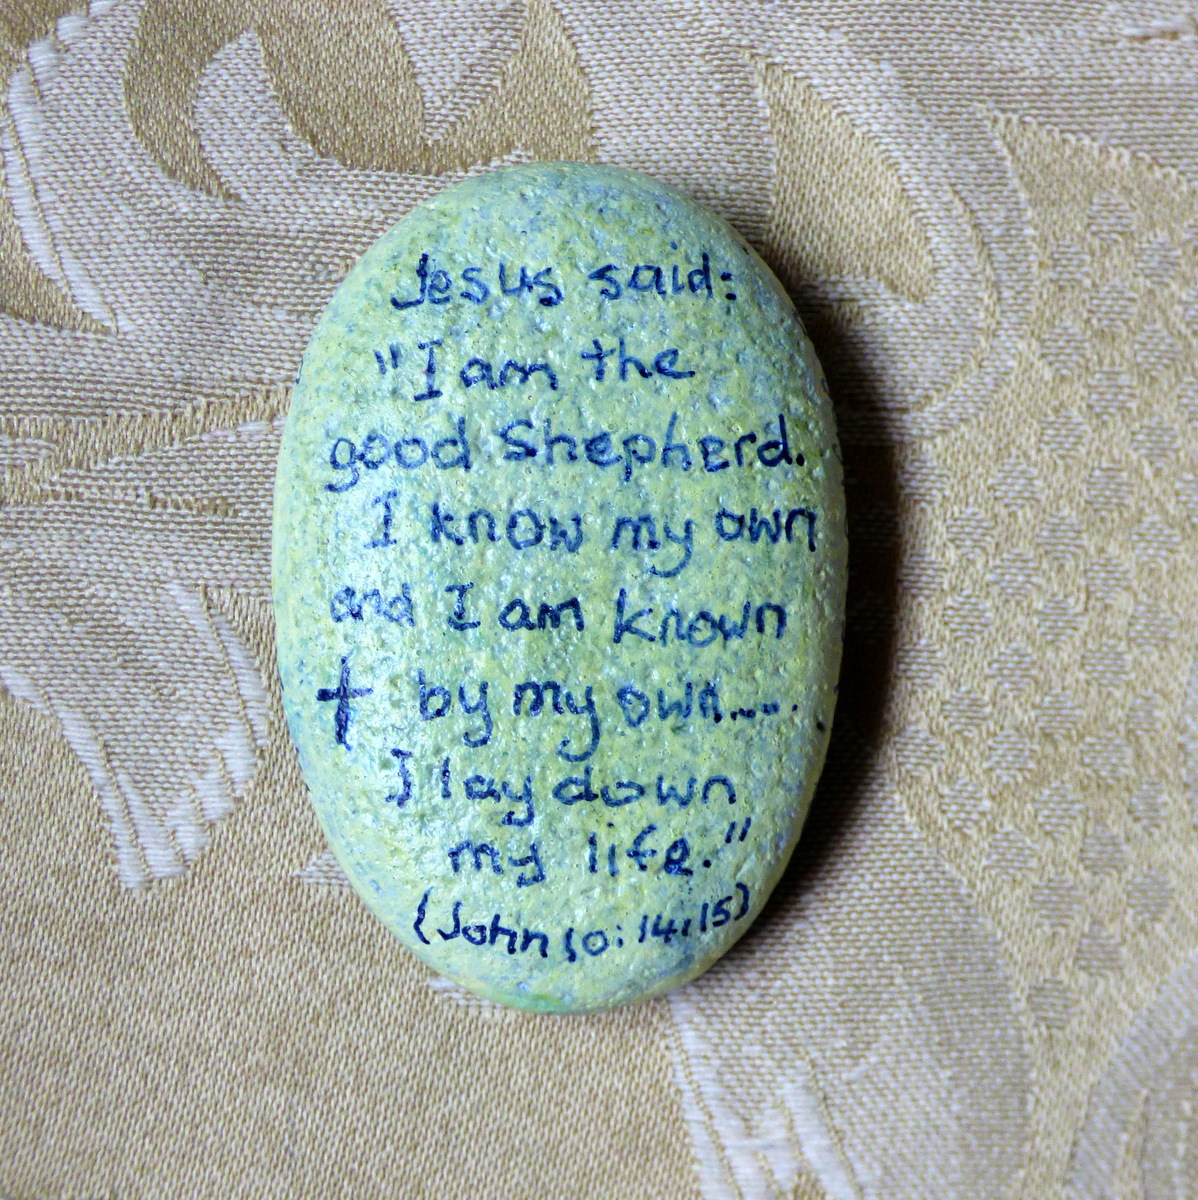 Jesus said:
"I am the
good Shepherd.
I know my own
and I am known
† by my own....
I lay down
my life."
(John 10:14,15)